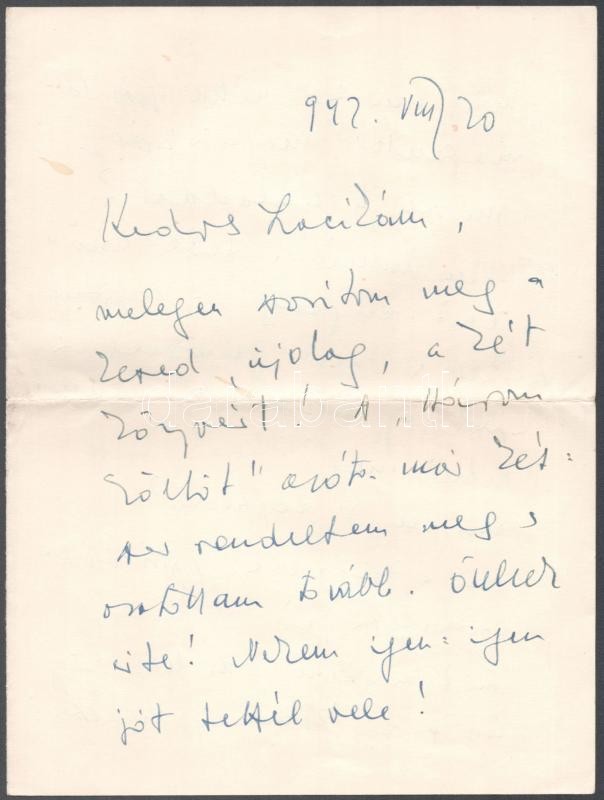 942. VIII/20
Kedves Lacikám,
melegen szorítom meg a
kezed, újolag, a két
könyvért! A „Három
költőt" azóta már két=
szer rendeltem meg s
osztottam tovább.
Nekem igen=igen
jót tettél vele!
darabanth